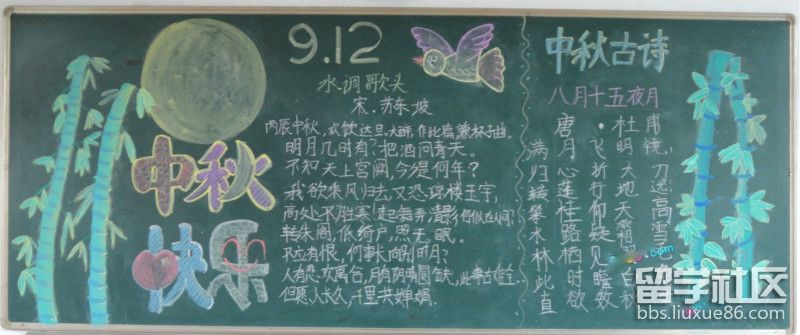 9.12
中秋
快乐
水调歌头
宋.苏东坡
丙辰中秋，欢饮达旦，大醉，作此篇兼怀子由。
明月几时有？把酒问青天。
不知天上宫阙，今夕是何年？
我欲乘风归去，又恐琼楼玉宇，
高处不胜寒！起舞弄清影，何似在人间？
转朱阁，低绮户，照无眠。
不应有恨，何事长向别时圆？
人有悲欢离合，月有阴晴圆缺，此事古难全。
但愿人长久，千里共婵娟。
中秋古诗
八月十五夜月
唐·杜甫
满月飞明镜，
归心折大刀
转蓬行地远
攀桂仰天高
水路疑霜雪
林栖见羽
此时瞻白
直欲数秋
留学社区
bbs.liuxue86.com